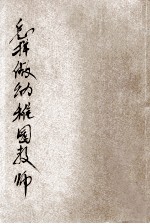 怎样做幼稚园教师